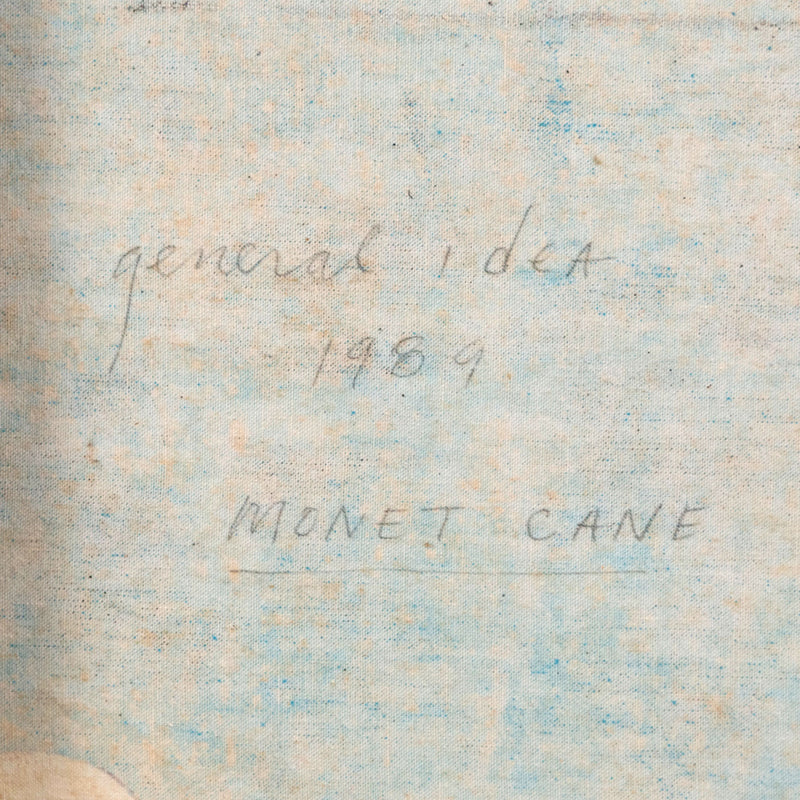 general idea
1989
MONET CANE